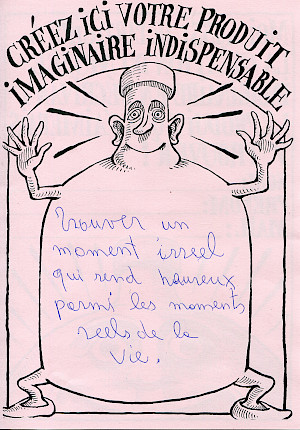 CRÉEZ ICI VOTRE PRODUIT
IMAGINAIRE INDISPENSABLE
Trouver un
moment irreel
qui rend heureux
parmi les moments
reels de la
vie.